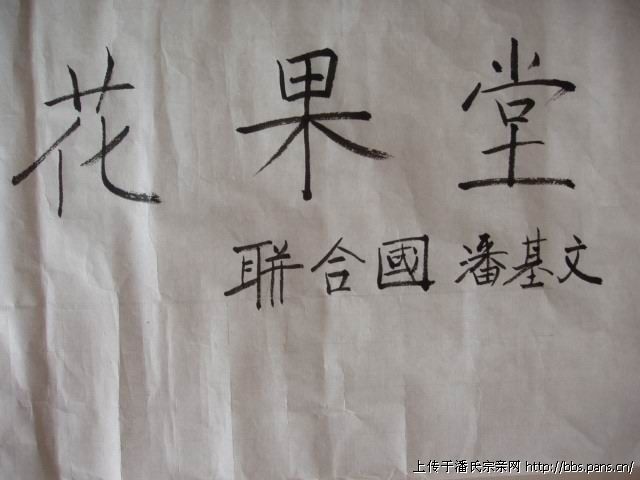 花果堂
聯合國 潘基文
上传于潘氏宗亲网 http://bbs.pans.cn/